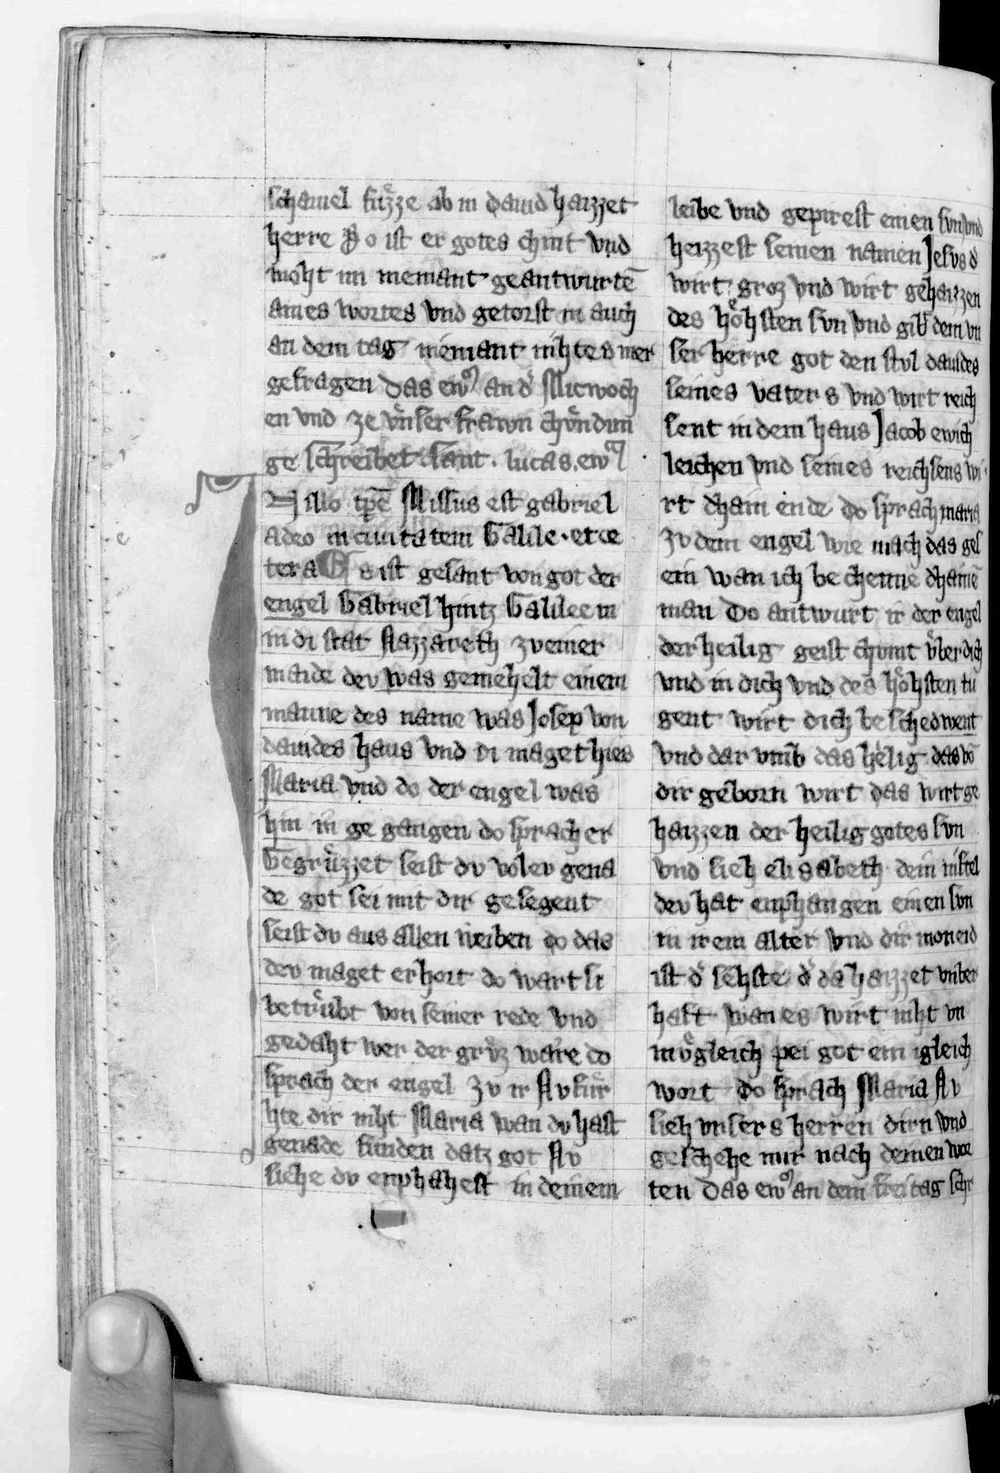 schamel fuͤzze ob in dauid haizzet
herre So ist er gotes chint vnd
moht im niemant geantwurtē
aines wortes vnd getorst in auch
an dem tag niemant nihtes mer
gefragen Das ewꝰ an dͤ Mitwoch
en vnd ze vͤnser frawn chuͤndun
ge schreibet. sant. lucas. ewꝰ
In illo tp̄e Missus est gabriel
adeo in ciuitatem Galile. et ce
tera Es ist gesant von got der
engel Gabriel hintz Galilee in
in di stat Nazzareth zv einer
maide dev was gemehelt einem
manne des name was Josep von
dauides haus vnd di maget hies
Maria vnd do der engel was
hin in ge gangen do sprach er
Gegruͤzzet seist dv volev gena
de got sei mit dir gesegent
seist dv aus allen weiben do das
dev maget erhort do wart si
betruͤbt von seiner rede vnd
gedaht wer der gruͤz ware do
sprach der engel zv ir Nv fuͤr
hte dir niht Maria wan dv hast
genade funden datz got Nv
siche dv enphahest in deinem
leibe vnd gepirest einen svn vnd
heizzest seinen namen Jesvs dͤ
wirt groz vnd wirt gehaizzen
des hoͤhsten svn vnd gib dem vn
ser herre got den stvl dauides
seines vaters vnd wirt reich
sent in dem haus Jacob ewich
leichen vnd seines reichsens wi
rt dhain ende do sprach maria
zv dem engel wie mach das ges
ein wan ich be chenne dhainē
man Do antwurt ir der engel
der heilig geist chvmt vͤber dich
vnd in dich vnd des hoͤhsten tu
gent wirt dich be schedwent
vnd dar vmb das heilig das vō
dir geborn wirt das wirt ge
haizzen der heilig gotes svn
vnd sieh elisabeth dein niftel
dev hat enphangen einen svn
in irem alter vnd dir moneid
ist dͤ sehste dͤ da haizzet vnber
haft wan es wirt niht vn
moͤgleich pei got ein igleich
wort Do sprach Maria Nv
sieh vnsers herren dirn vnd
geschehe mir nach deinen wor
ten Das ewꝰ an dem freitag schr